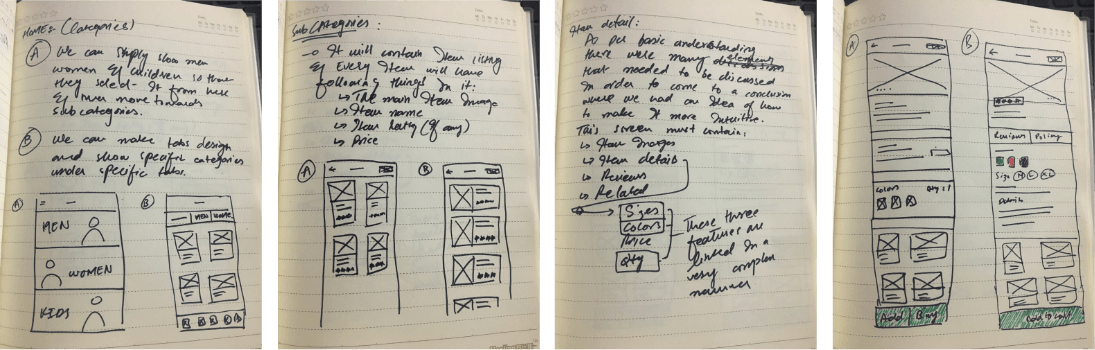 HOME: (Categories)
A We can simply show men
women & children so that
they select it from here
& then move towards
sub categories.
B We can make tabs design
and show specific categories
under specific tabs.
A
B
MEN
WOMEN
KIDS
MEN
Sub Categories:
It will contain Item listing
& Every Item will have
following things in it:
↳ The main Item Image
↳ Item name
↳ Item (if any)
↳ Price
A
B
Item detail:
As per basic understanding
there were many elements
that needed to be discussed
in order to come to a conclusion
where we had an Idea of how
to make it more Intuitive.
This screen must contain:
↳ Item Images
↳ Item details
↳ Reviews
↳ Related
Sizes
Colors
Price
Qty
These three
features are
linked in a
very complex
manner
A
B
Colors
Qty: 1
Add Buy
Reviews Policy
Size M L XL
Details
Add to Cart